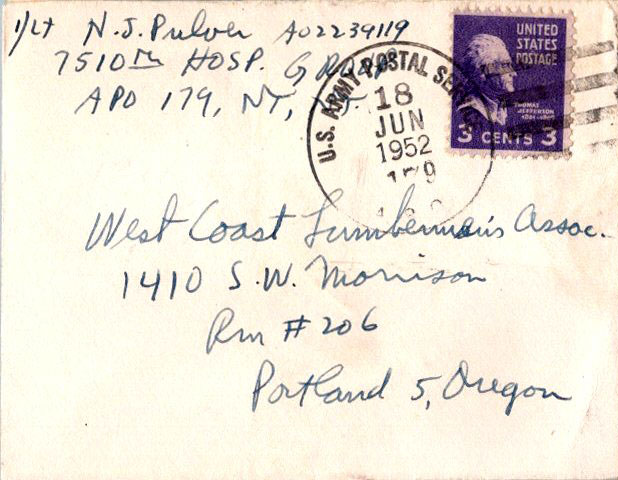 1/Lt N.J. Pulver AO2239119
7510th HOSP. GROUP
APO 179, NY, NY
U.S. ARMY POSTAL SERVICE
18
JUN
1952
179
UNITED
STATES
POSTAGE
THOMAS
JEFFERSON
1801-1809
3 CENTS 3
West Coast Lumberman's Assoc.
1410 S.W. Morrison
Rm #206
Portland 5, Oregon